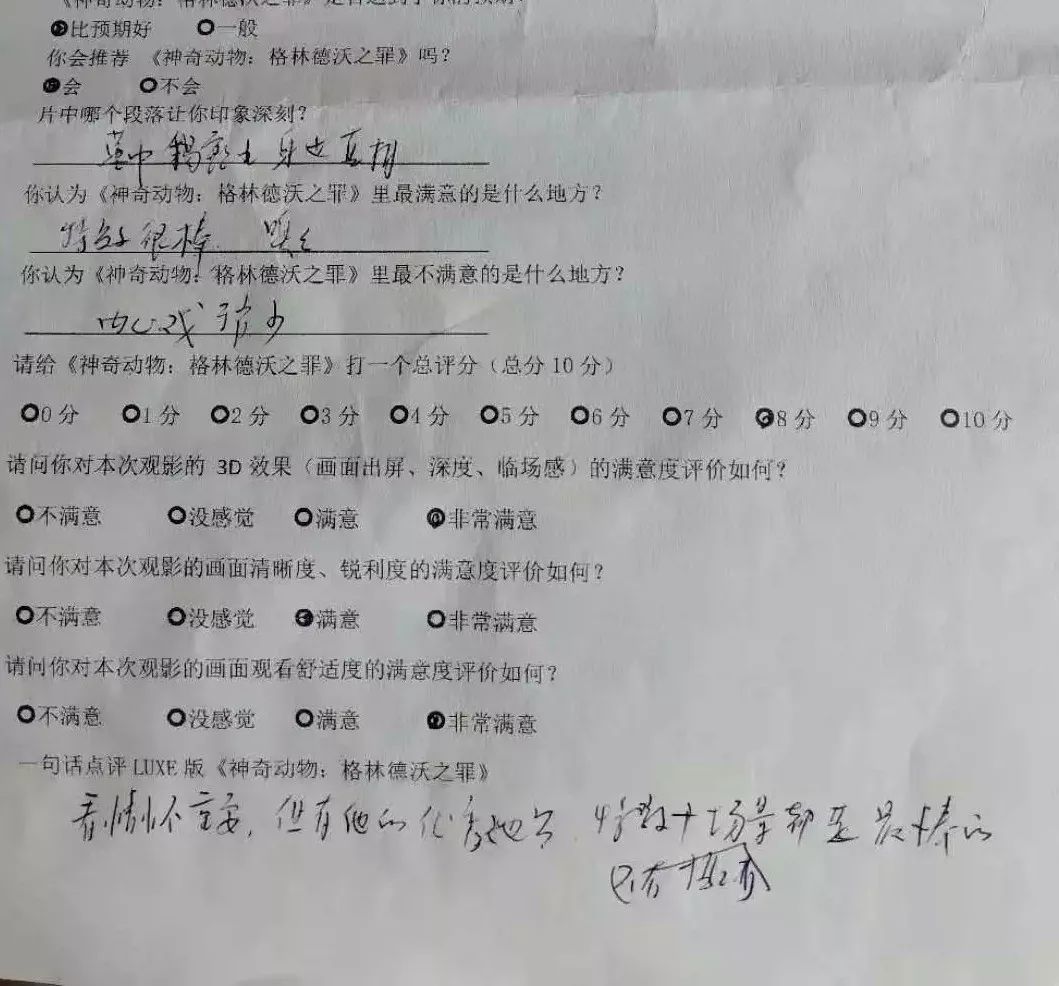 《神奇动物：格林德沃之罪》是否达到了你的预期？
比预期好 一般
你会推荐 《神奇动物：格林德沃之罪》吗？
会 不会
片中哪个段落让你印象深刻？
身世真相
你认为《神奇动物：格林德沃之罪》里最满意的是什么地方？
特效很棒
你认为《神奇动物：格林德沃之罪》里最不满意的是什么地方？
内心戏 少
请给《神奇动物：格林德沃之罪》打一个总评分（总分 10 分）
0 分 1 分 2 分 3 分 4 分 5 分 6 分 7 分 8 分 9 分 10 分
请问你对本次观影的 3D 效果（画面出屏、深度、临场感）的满意度评价如何？
不满意 没感觉 满意 非常满意
请问你对本次观影的画面清晰度、锐利度的满意度评价如何？
不满意 没感觉 满意 非常满意
请问你对本次观影的画面观看舒适度的满意度评价如何？
不满意 没感觉 满意 非常满意
一句话点评 LUXE 版《神奇动物：格林德沃之罪》
但有他的优秀地方，特效+场景都是最棒的